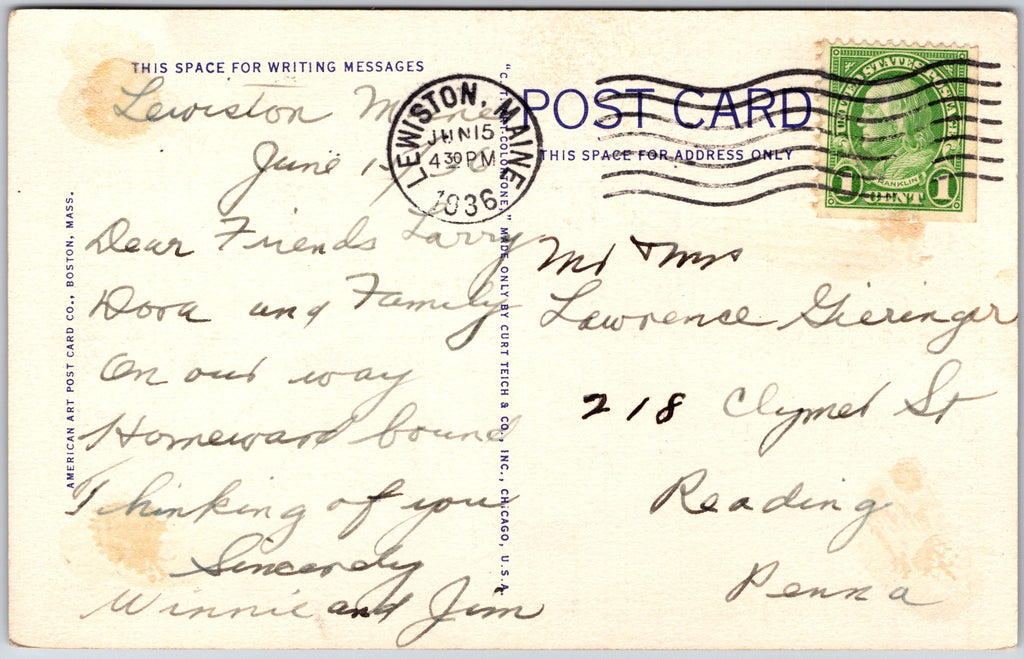 THIS SPACE FOR WRITING MESSAGES
Lewiston Maine
June 15
Dear Friends Larry
Dora and Family
On our way
Homeward bound
Thinking of you
Sincerely
Winnie and Jim
AMERICAN ART POST CARD CO., BOSTON, MASS.
"C.T. ART-COLORTONE" MADE ONLY BY CURT TEICH & CO., INC., CHICAGO, U.S.A.
LEWISTON, MAINE
JUN 15
4 30 PM
1936
POST CARD
THIS SPACE FOR ADDRESS ONLY
UNITED STATES POSTAGE
FRANKLIN
1 CENT 1
Mr & Mrs
Lawrence Gieringer
218 Clymer St
Reading
Penna